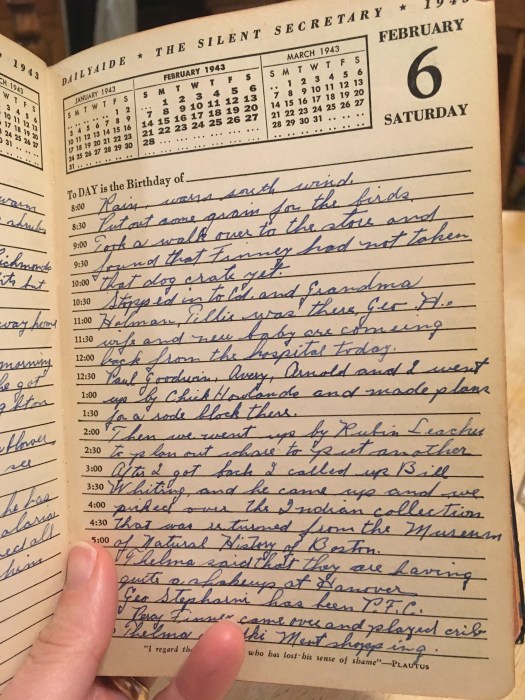 1943
DAILYAIDE ★ THE SILENT SECRETARY ★ 1943
JANUARY 1943
FEBRUARY 1943
MARCH 1943
S M T W T F S
1 2
3 4 5 6 7 8 9
10 11 12 13 14 15 16
17 18 19 20 21 22 23
24 25 26 27 28 29 30
31
S M T W T F S
1 2 3 4 5 6
7 8 9 10 11 12 13
14 15 16 17 18 19 20
21 22 23 24 25 26 27
28
S M T W T F S
1 2 3 4 5 6
7 8 9 10 11 12 13
14 15 16 17 18 19 20
21 22 23 24 25 26 27
28 29 30 31
FEBRUARY
6
SATURDAY
To DAY is the Birthday of
8:00 Rain, warm south wind.
8:30 Put out some grain for the birds.
9:00 Took a walk over to the store and
9:30 found that Finney had not taken
10:00 that dog crate yet.
10:30 Stopped in to Ed and Grandma
11:00 Holman, Tillie was there, Geo. H.
11:30 wife and new baby are comeing
12:00 back from the hospital today.
12:30 Paul Goodwin, Avery, Arnold and I went
1:00 up by Chick Howlands and made plans
1:30 for a rode block there.
2:00 Then we went up by Rubin Leaches
2:30 to plan out where to put another
3:00 After I got back I called up Bill
3:30 Whiting, and he came up and we
4:00 picked over the Indian collection
4:30 that was returned from the Museum
5:00 of Natural History of Boston.
Thelma said that they are having
quite a shakeup at Hanover
Geo Stepharni has been P.F.C.
Percy Finney came over and played crib
Thelma Ment shopping.
"I regard who has lost his sense of shame"—PLAUTUS